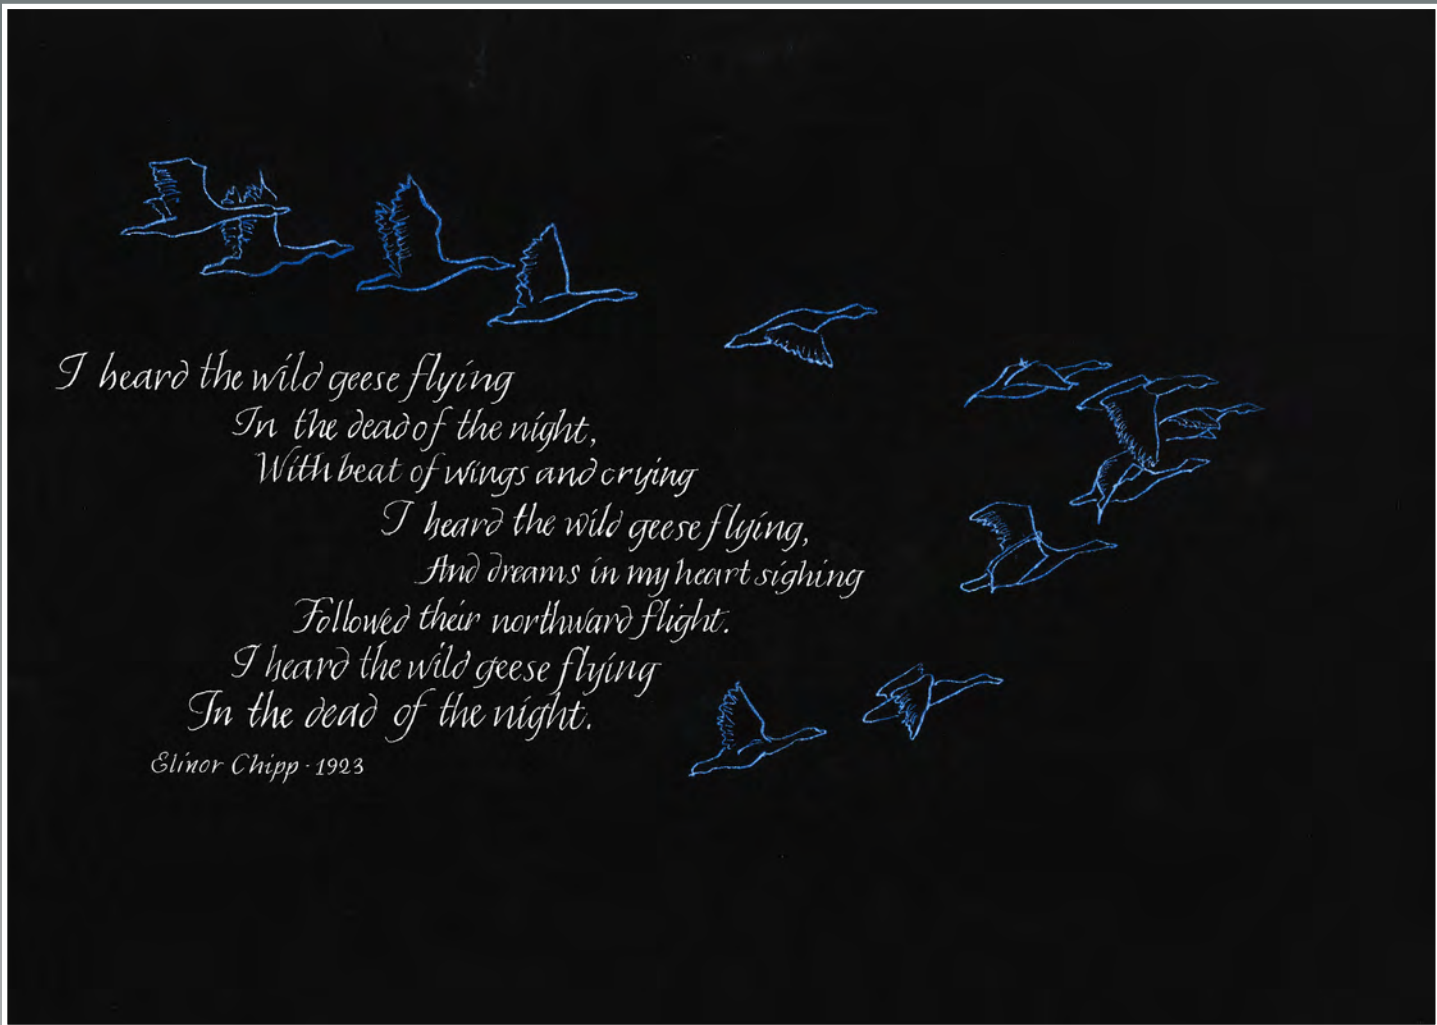 I heard the wild geese flying
In the dead of the night,
With beat of wings and crying
I heard the wild geese flying,
And dreams in my heart sighing
Followed their northward flight.
I heard the wild geese flying
In the dead of the night.
Elinor Chipp · 1923